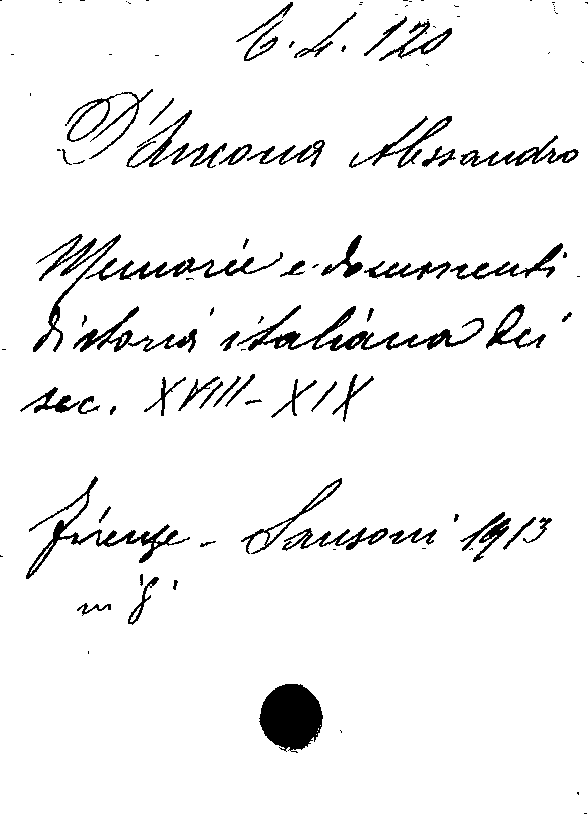 6.4.120
D'Ancona Alessandro
Memorie e documenti
di storia italiana dei
sec. XVIII-XIX
Firenze - Sansoni 1913
in 8°